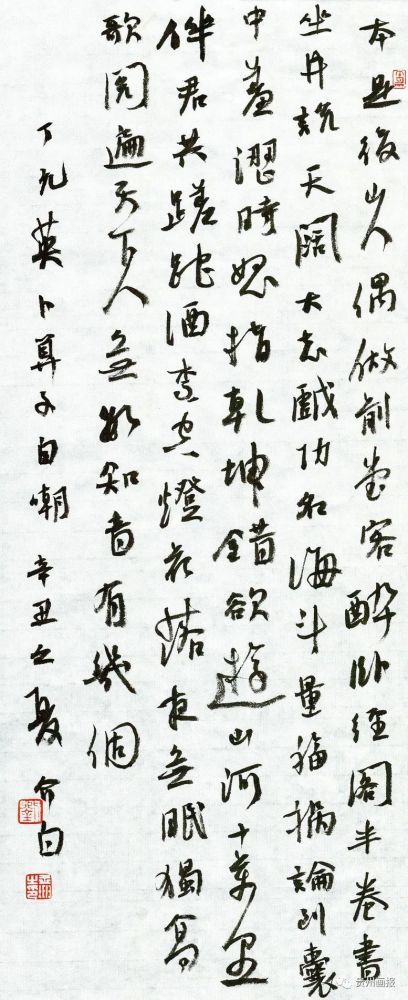 本是後山人偶做前堂客醉卧经阁半卷書
坐井説天闊大志戲功名海斗量福禍論到囊
中羞澀時怒指乾坤錯欲遊山河十萬里
伴君共蹉跎酒空燈花落夜無眠獨高
歌閱遍天下人無數知音有幾個
丁元英卜算子自嘲 辛丑之夏介白
贵州画报